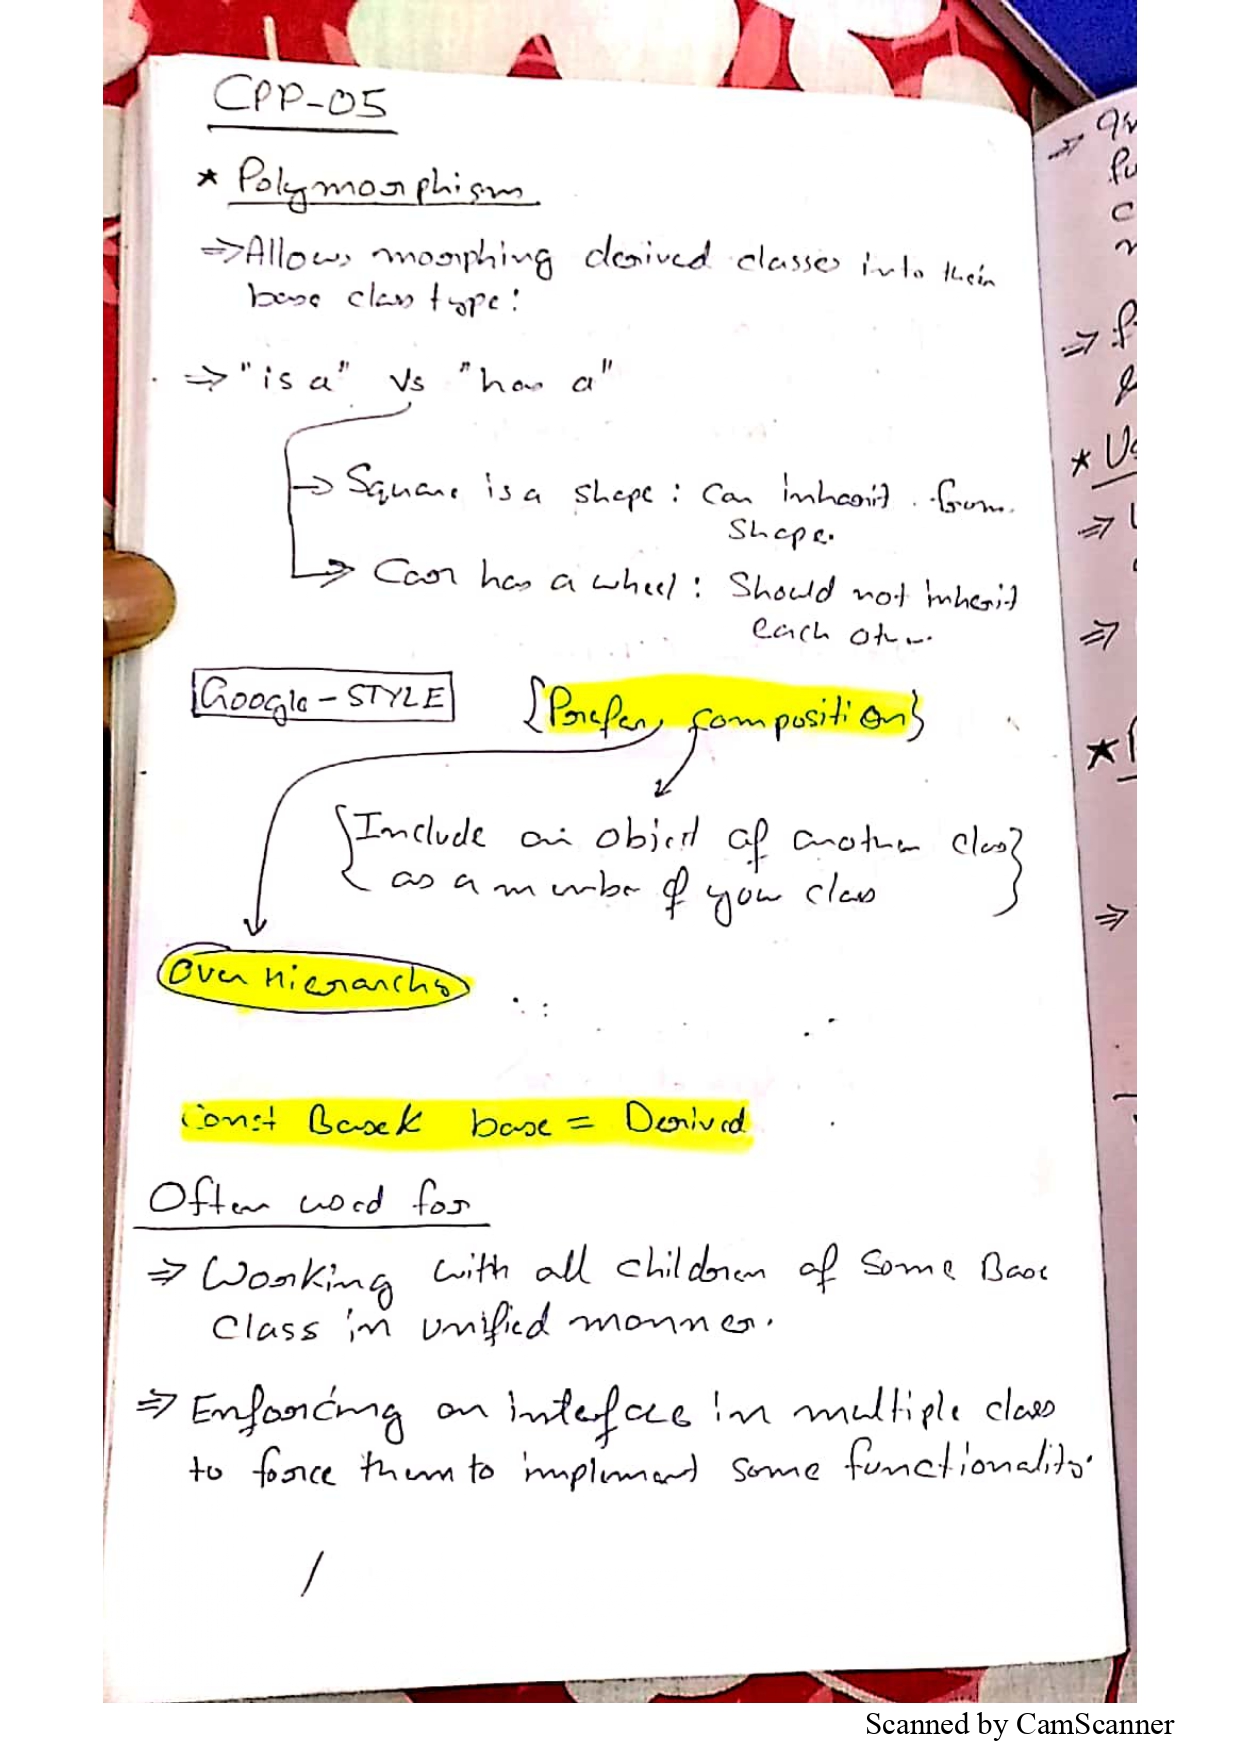 CPP-05
* Polymorphism
⇒ Allows morphing derived classes into their
base class type:
⇒ "is a" vs "has a"
→ Square is a shape: Can inherit from
Shape.
→ Car has a wheel: Should not inherit
each other.
Google-STYLE {Prefer composition}
{Include an object of another class}
as a member of your class
Over Hierarchy
Const Base& base = Derived
Often used for
⇒ Working with all children of some Base
Class in unified manner.
⇒ Enforcing an interface in multiple class
to force them to implement some functionality.
Scanned by CamScanner